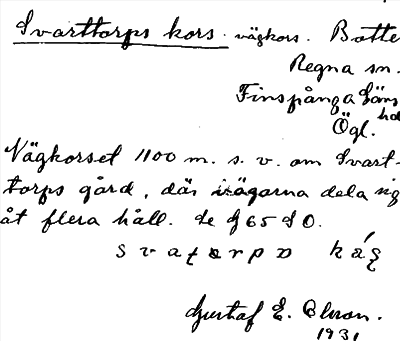 Svarttorps kors. vägkors. Botte
Regna sn.
Finspånga läns
hd
Ögl.
Vägkorset 1100 m. s. v. om Svart-
torps gård, där vägarna dela sig
åt flera håll. Se G 65 S O.
Gustaf E.
1931